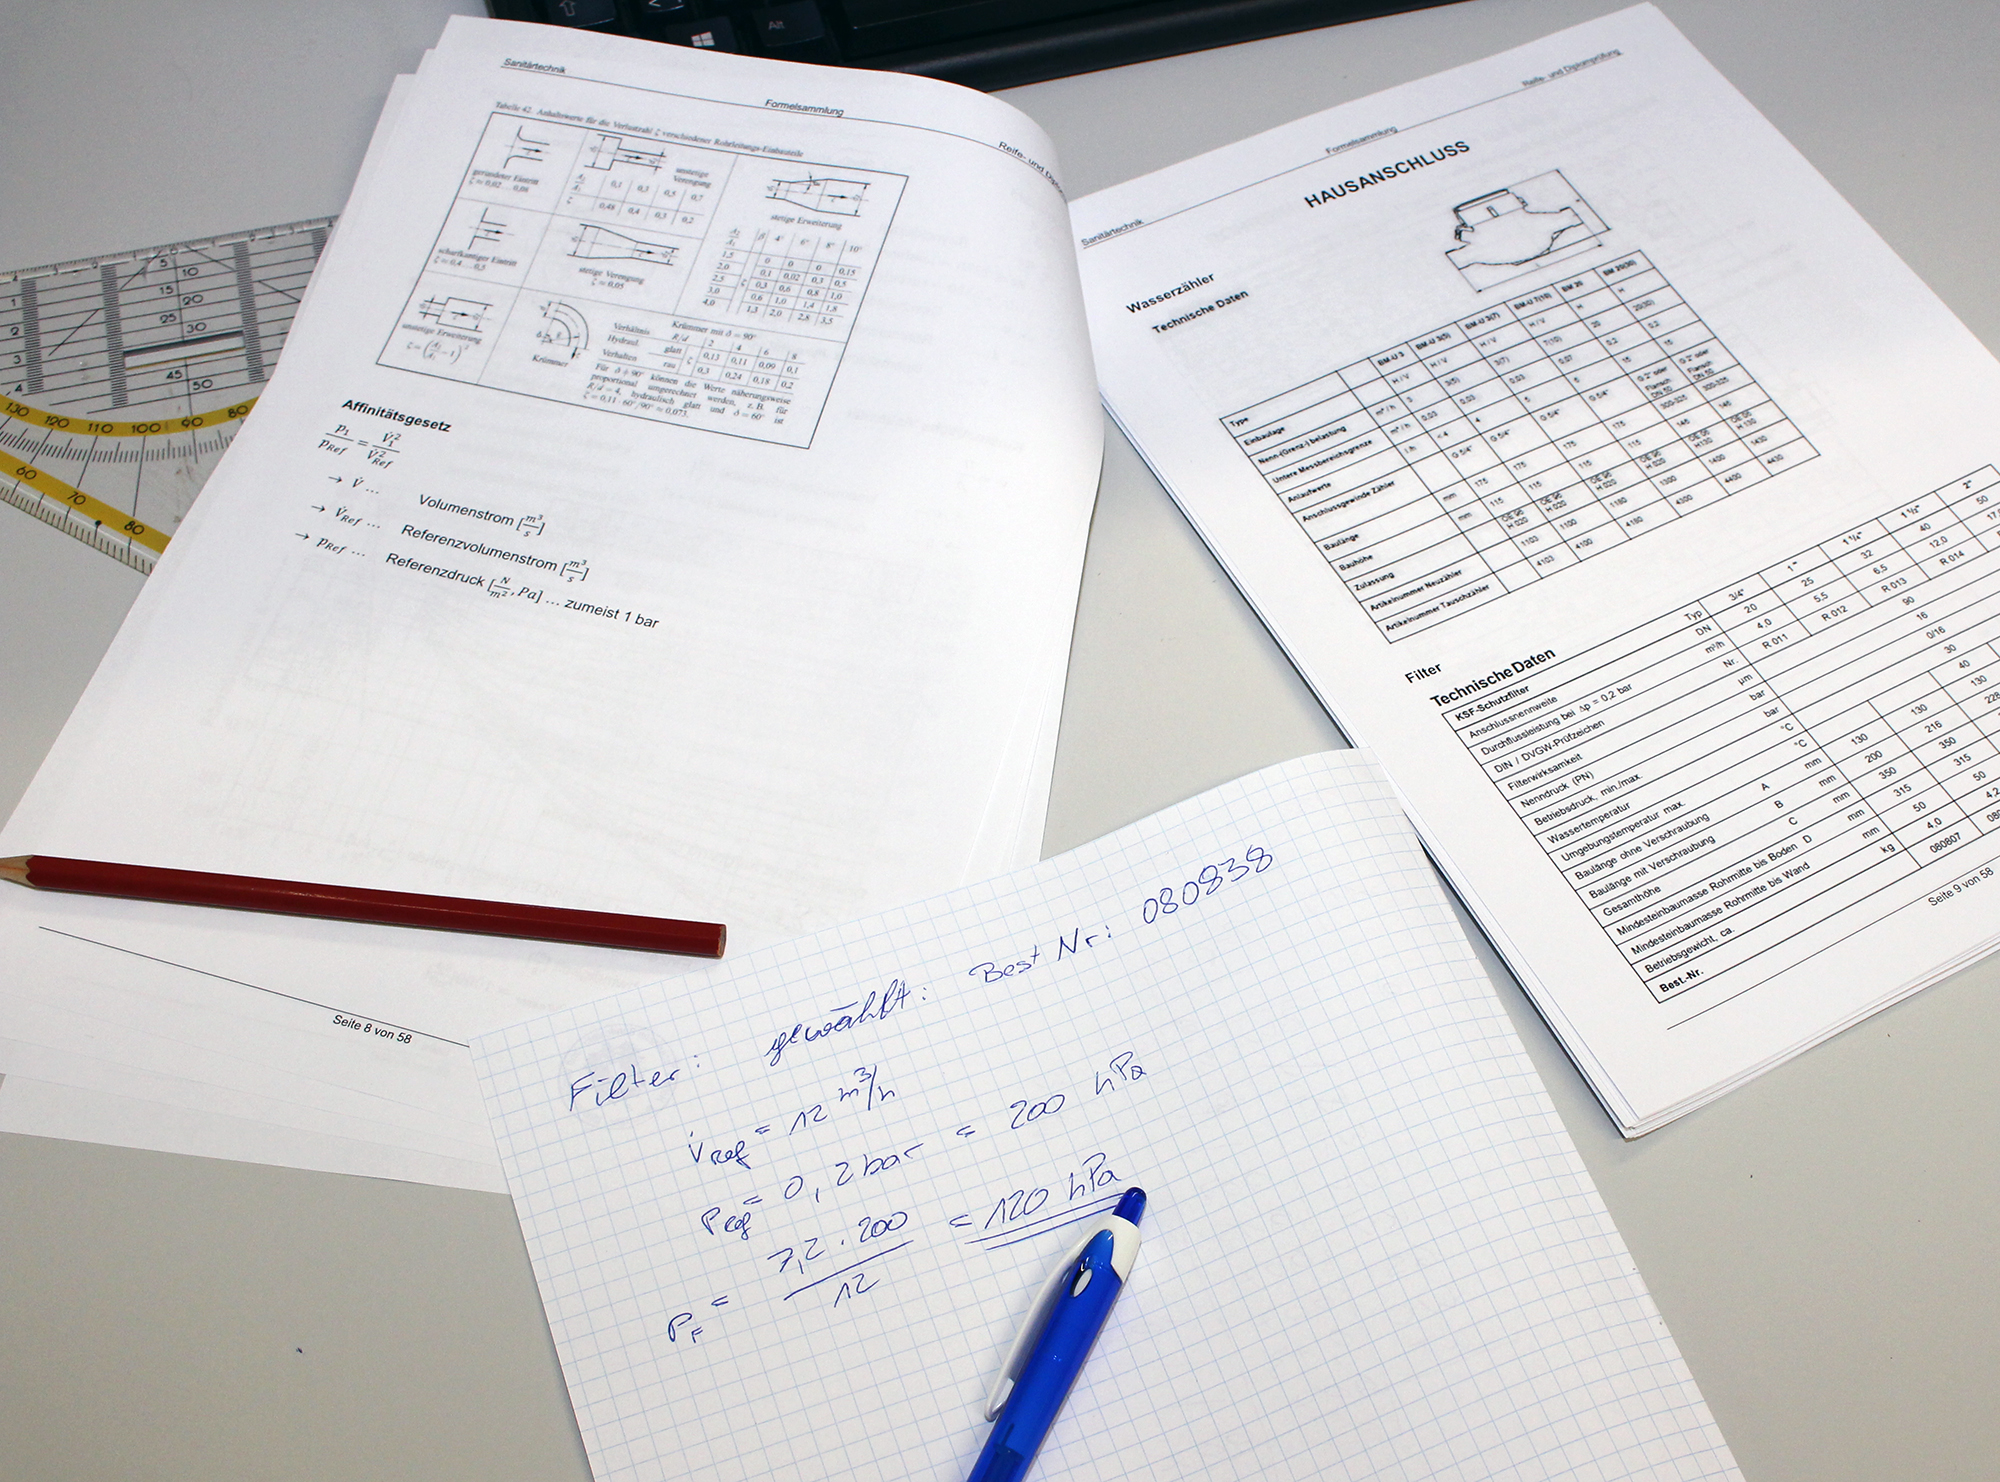 Sanitärtechnik
Formelsammlung
Reife- und Diplom
Tabelle 42. Anhaltswerte für die Verlustzahl ζ verschiedener Rohrleitungs-Einbauteile
gerundeter Eintritt
ζ ≈ 0,02 ... 0,08
unstetige
Verengung
0,1 0,3 0,5 0,7
ζ 0,48 0,4 0,3 0,2
scharfkantiger Eintritt
ζ ≈ 0,4 ... 0,5
stetige Verengung
ζ ≈ 0,05
stetige Erweiterung
β 4° 6° 8° 10°
1,5 0 0 0 0,15
2,0 0,1 0,02 0,3 0,5
2,5 ζ 0,3 0,6 0,8 1,0
3,0 0,6 1,0 1,4 1,8
4,0 1,3 2,0 2,8 3,5
unstetige Erweiterung
Krümmer
Krümmer mit δ = 90°
Verhältnis R/d 2 4 6 8
Hydraul. glatt ζ 0,13 0,11 0,09 0,1
Verhalten rau 0,3 0,24 0,18 0,2
Für δ ≠ 90° können die Werte näherungsweise
proportional umgerechnet werden, z. B. für
R/d = 4, hydraulisch glatt und δ = 60° ist
ζ = 0,11 · 60°/90° ≈ 0,073.
Affinitätsgesetz
p₁/p_Ref = V̇₁²/V̇²_Ref
→ V̇ ... Volumenstrom [m³/s]
→ V̇_Ref ... Referenzvolumenstrom [m³/s]
→ p_Ref ... Referenzdruck [N/m², Pa] ... zumeist 1 bar
Seite 8 von 58
Sanitärtechnik
Formelsammlung
Reife- und Diplomprüfung
HAUSANSCHLUSS
Wasserzähler
Technische Daten
Type BM-U 3 BM-U 3(5) BM-U 3(7) BM-U 7(10) BM 20 BM 20(30)
Einbaulage H / V H / V H / V H / V H H
Nenn-(Grenz-) belastung m³ / h 3 3(5) 3(7) 7(10) 20 20(30)
Untere Messbereichsgrenze m³ / h 0,03 0,03 0,03 0,07 0,2 0,2
Anlaufwerte l /h < 4 4 5 6 15 15
Anschlussgewinde Zähler G 5/4" G 5/4" G 5/4" G 5/4" G 2" oder Flansch DN 50 G 2" oder Flansch DN 50
Baulänge mm 175 175 175 175 300-325 300-325
Bauhöhe mm 115 115 115 115 145 145
Zulassung
Artikelnummer Neuzähler 1103 1100 1180 1300 1400 1430
Artikelnummer Tauschzähler 4103 4100 4180 4300 4400 4430
Filter
Technische Daten
KSF-Schutzfilter Typ 3/4" 1" 1 1/4" 1 1/2" 2"
Anschlussnennweite DN 20 25 32 40 50
Durchflussleistung bei Δp = 0,2 bar m³/h 4,0 5,5 6,5 12,0
DIN / DVGW-Prüfzeichen Nr. R 011 R 012 R 013 R 014
Filterwirksamkeit µm 90
Nenndruck (PN) bar 16
Betriebsdruck, min./max. bar 0/16
Wassertemperatur °C 30
Umgebungstemperatur max. °C 40
Baulänge ohne Verschraubung A mm 130 130 130
Baulänge mit Verschraubung B mm 200 216 228
Gesamthöhe C mm 350 350
Mindesteinbaumasse Rohrmitte bis Boden D mm 315 315
Mindesteinbaumasse Rohrmitte bis Wand mm 50 50
Betriebsgewicht, ca. kg 4,0 4,2
Best.-Nr. 080807
Seite 9 von 58
Filter: gewählt: Best Nr: 080838
V̇ref = 12 m³/h
Pref = 0,2 bar = 200 hPa
P_F = 7,2 · 200 / 12 = 120 hPa